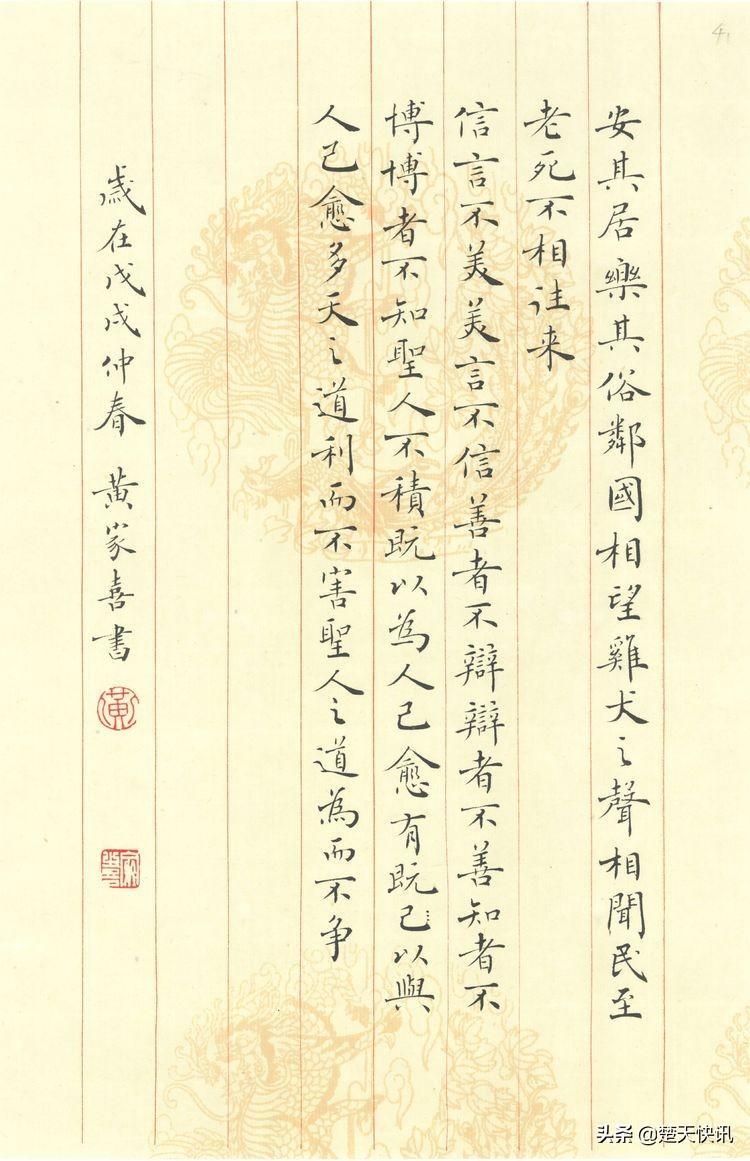 安其居樂其俗鄰國相望雞犬之聲相聞民至
老死不相往来
信言不美美言不信善者不辯辯者不善知者不
博博者不知聖人不積既以為人己愈有既己以與
人己愈多天之道利而不害聖人之道為而不争
歲在戊戌仲春 黄家喜書
黄
41
头条 @楚天快讯